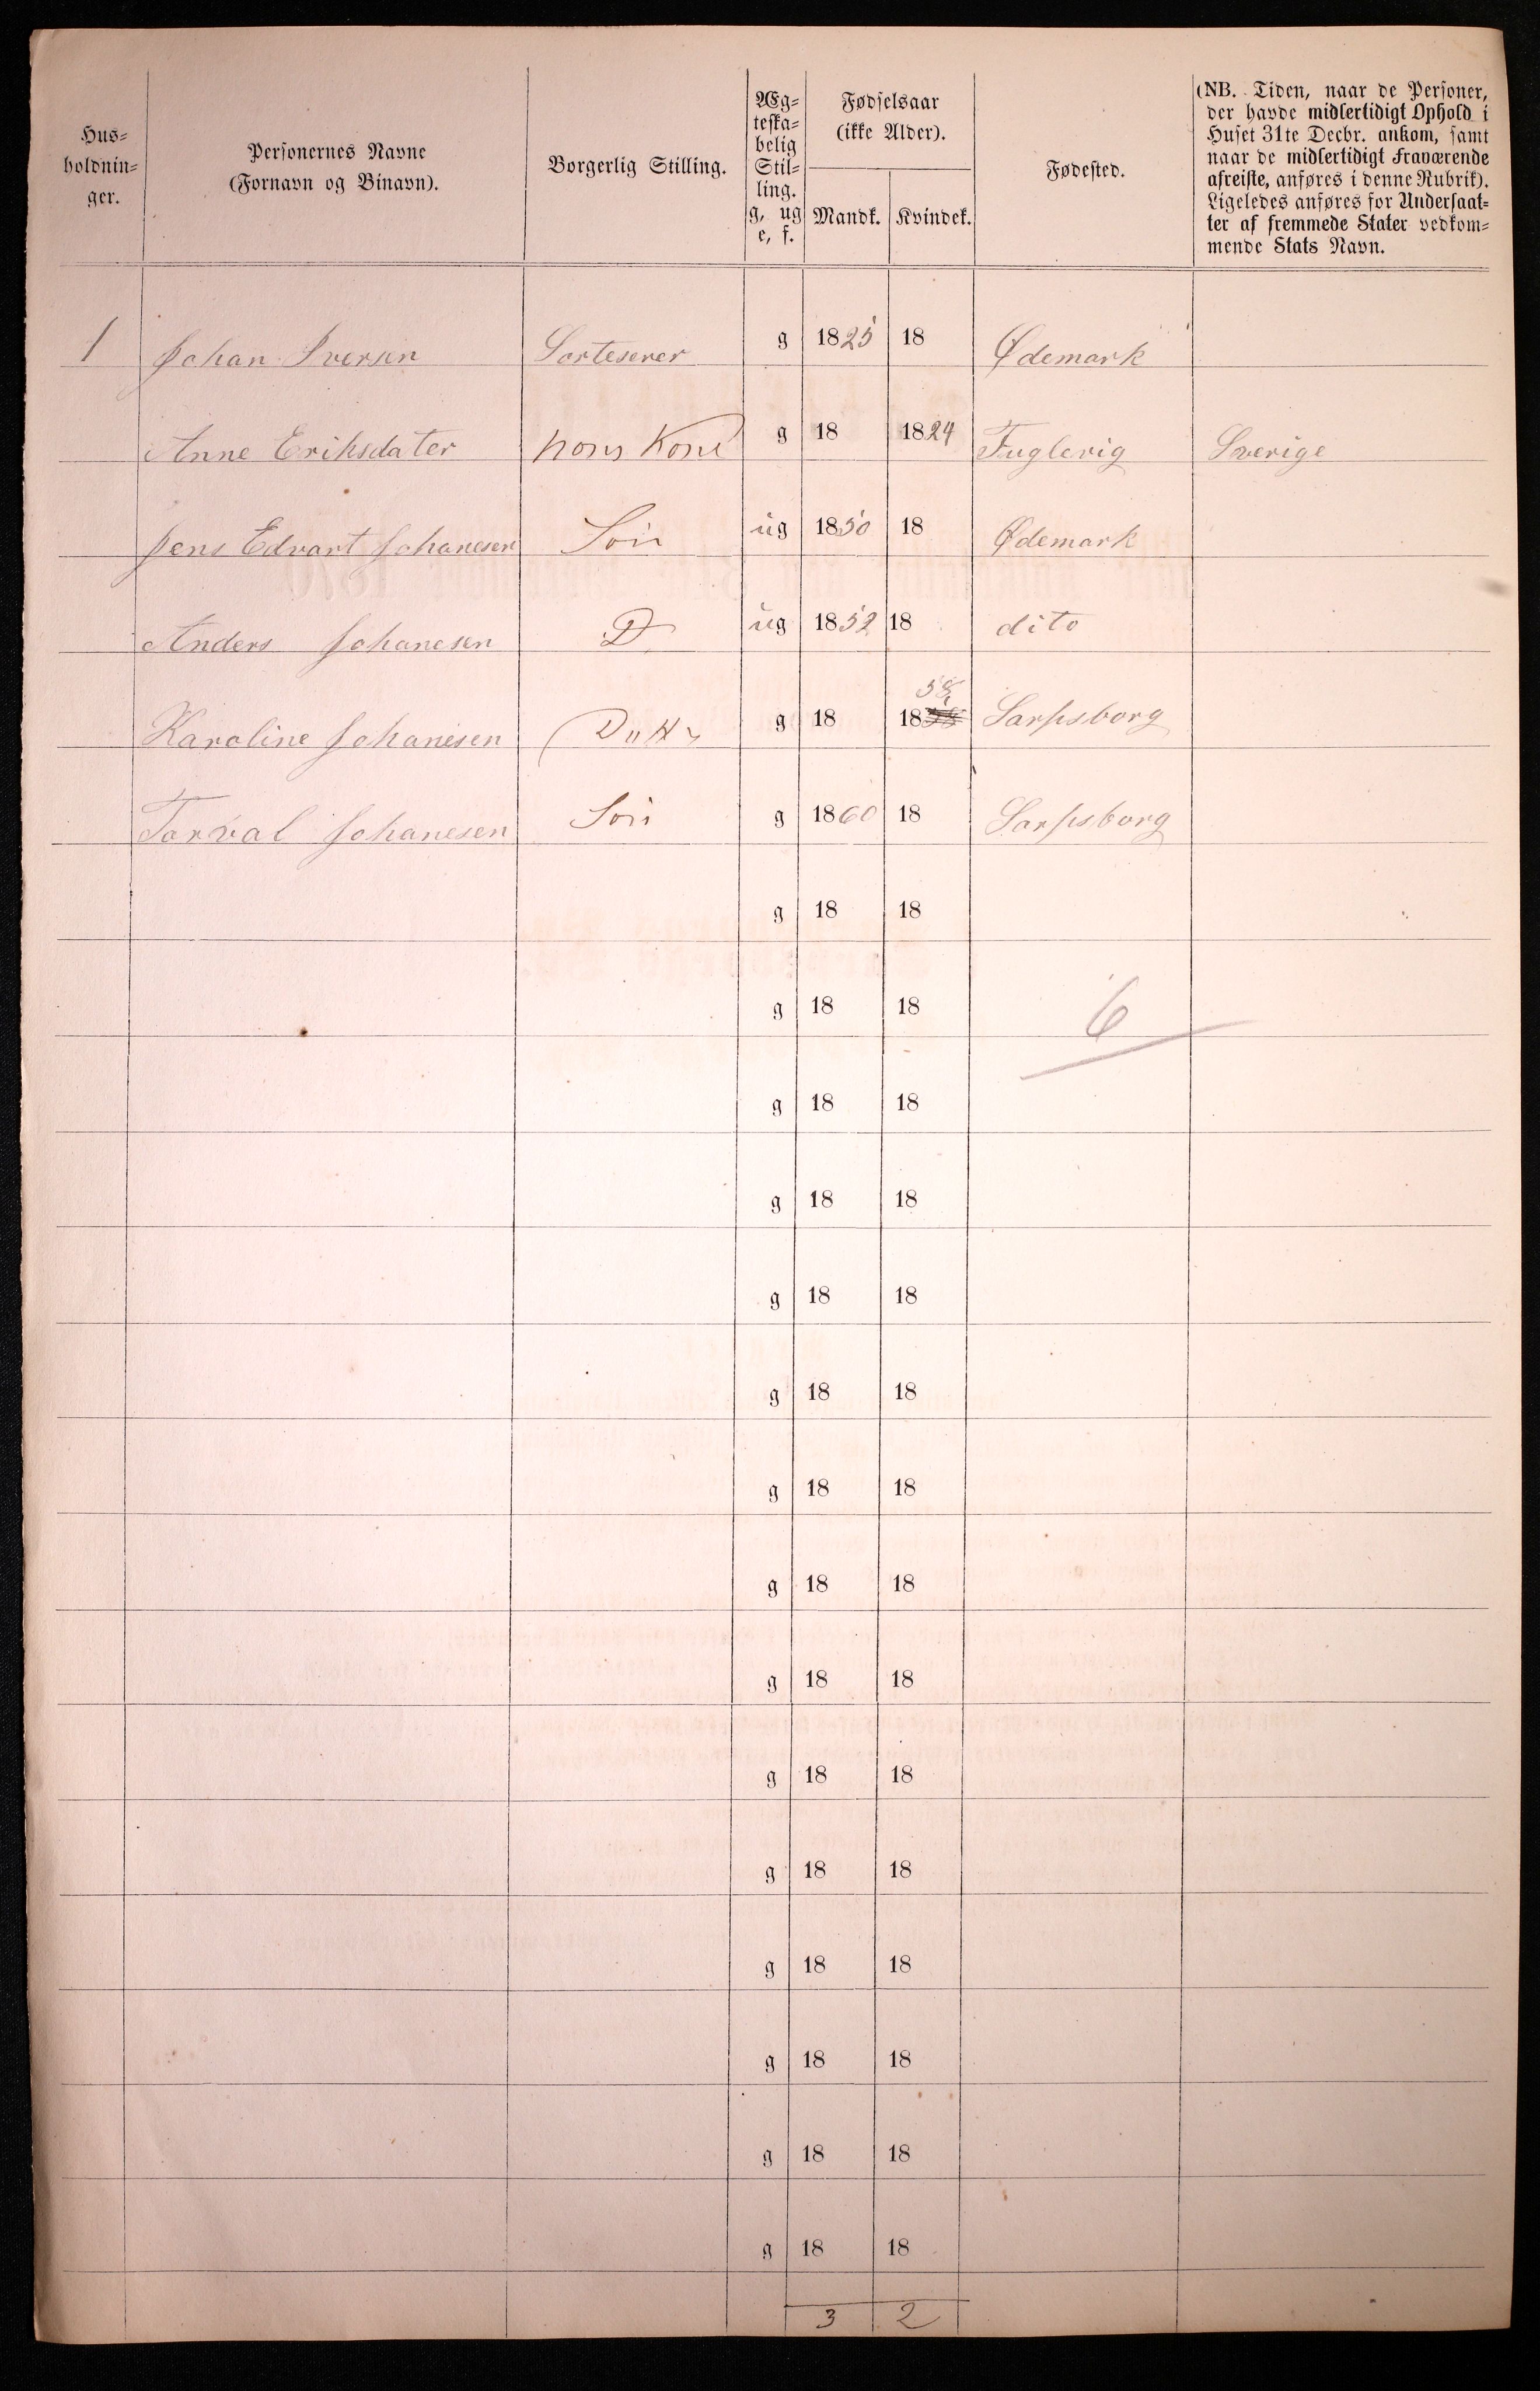 Hus-
holdnin-
ger.
Personernes Navne
(Fornavn og Binavn).
Borgerlig Stilling.
Æg-
teska-
belig
Stil-
ling.
g, ug
e, f.
Fødselsaar
(ikke Alder).
Mandk. Kvindek.
Fødested.
(NB. Tiden, naar de Personer,
der havde midlertidigt Ophold i
Huset 31te Decbr. ankom, samt
naar de midlertidigt Fraværende
afreiste, anføres i denne Rubrik).
Ligeledes anføres for Undersaat-
ter af fremmede Stater vedkom-
mende Stats Navn.
1 Johan Iversen Sorteserer g 1825 18 Ødemark
Anne Eriksdater hans Kone g 18 1824 Fuglevig Sverige
Jens Edvart Johanesen Søn ug 1850 18 Ødemark
Anders Johanesen D ug 1852 18 dito
Karoline Johanesen g 18 18 58 Sarpsborg
Torval Johanesen Søn g 1860 18 Sarpsborg
g 18 18
g 18 18 6
g 18 18
g 18 18
g 18 18
g 18 18
g 18 18
g 18 18
g 18 18
g 18 18
g 18 18
g 18 18
g 18 18
g 18 18
g 18 18
3 2